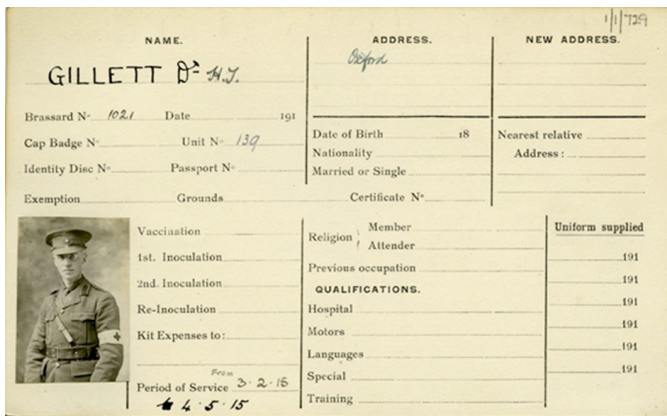 1/1/729
NAME.
GILLETT Dr H.T.
Brassard No 1021 Date 191
Cap Badge No Unit No 139
Identity Disc No Passport No
Exemption Grounds Certificate No
ADDRESS.
Oxford
Date of Birth 18
Nationality
Married or Single
NEW ADDRESS.
Nearest relative
Address :
Vaccination
1st. Inoculation
2nd. Inoculation
Re-Inoculation
Kit Expenses to:
From
Period of Service 3.2.15
4.5.15
Religion Member
Attender
Previous occupation
QUALIFICATIONS.
Hospital
Motors
Languages
Special
Training
Uniform supplied
191
191
191
191
191
191